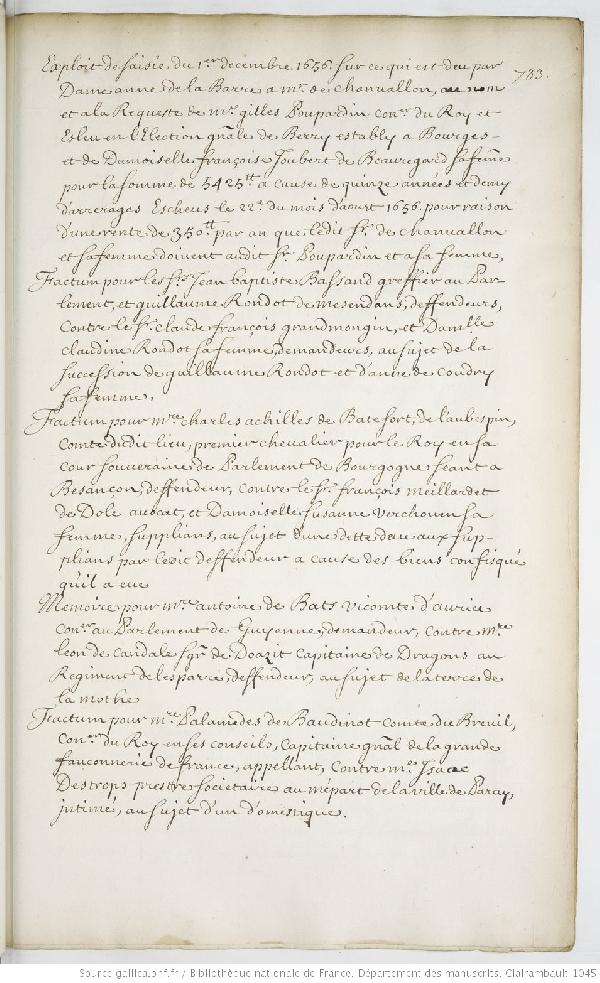 733.
Exploit de saisie, du 1er decembre 1656 sur ce qui est deu par
Dame anne de la Barre a mr. de Chanuallon, au nom
et a la Requeste de mr. gilles Poupardin coner. du Roy et
Esleu en l'Election gnãle de Berry estably a Bourges
et de Damoiselle françoise Joubert de Beauregard sa feme
pour la somme de 5425tt a cause de quinze années et demy
d'arrerages Escheus le 22e. du mois d'aoust 1656. pour raison
d'une rente de 350.tt par an que ledit Sr. de Chanuallon
et sa femme doivent audit Sr. Poupardin et a sa femme,
Factum pour les Srs. Jean baptiste Bassand greffier au Par-
lement, et guillaume Rondot de mesendans, deffendeurs,
Contre le Sr. claude françois grandmongin, et Damlle
claudine Rondot sa femme, demandeurs, au sujet de la
succession de guillaume Rondot et d'anne de Coudry
sa femme,
Factum pour mre charles achilles de Batefort, de l'aubespin,
Comte dudit lieu, premier chevalier pour le Roy en sa
Cour souveraine de Parlement de Bourgogne seant a
Besançon, deffendeur, contre le Sr. françois meillardet
de Dole auocat, et Damoiselle Susanne Verchouen sa
femme, supplians, au sujet d'une dette deue aux sup-
plians par ledit deffendeur a cause des biens confisqué
qu'il a eue
Memoire pour mre. antoine de Bats vicomte d'aurice
Coner au Parlement de Guyenne, demandeur, contre mre
leon de Candale Sgr. de Doazit Capitaine de Dragons au
Regiment de lesparre, deffendeur, au sujet de la terre de
la mothe
Factum pour mre Palamedes de Baudinot Comte du Breuil,
Coner du Roy en ses conseils, Capitaine gnãl de la grande
fauconnerie de france, appellant, Contre mre. Isaac
Destrops prestre societaire au mépart de la ville de Paray,
intimé, au sujet d'un domestique.
Source gallica.bnf.fr / Bibliothèque nationale de France. Département des manuscrits. Clairambault 1045